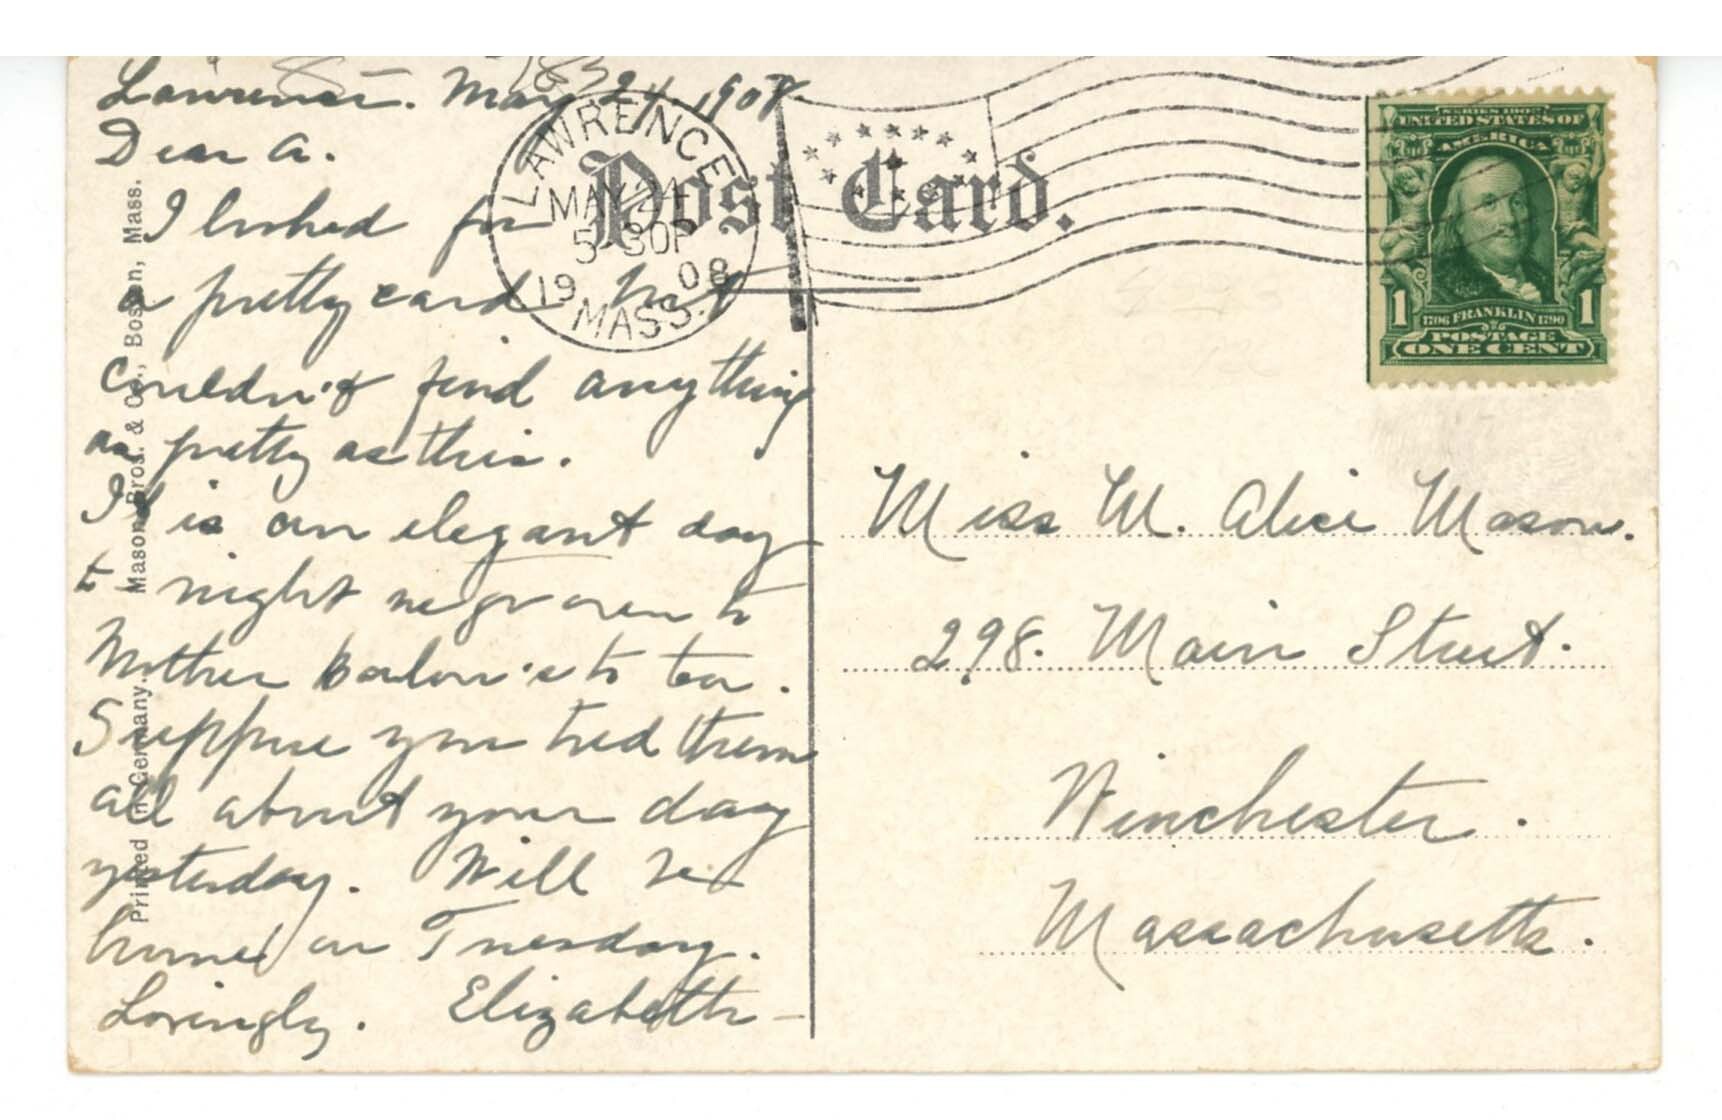 Lawrence. May 24. 1908
Dear A.
I looked for
a pretty card but
couldn't find anything
as pretty as this.
It is an elegant day
to night we go over to
Mother 's to tea.
Suppose you told them
all about your day
yesterday. Will be
home on Tuesday.
Lovingly. Elizabeth
Printed in Germany. Mason Bros. & Co., Boston, Mass.
Post Card.
LAWRENCE
MAY 24
5-30P
1908
MASS.
SERIES 1902
UNITED STATES OF
AMERICA
1706 FRANKLIN 1790
1 1
POSTAGE
ONE CENT
Miss M. Alice Mason.
298. Main Street.
Winchester.
Massachusetts.